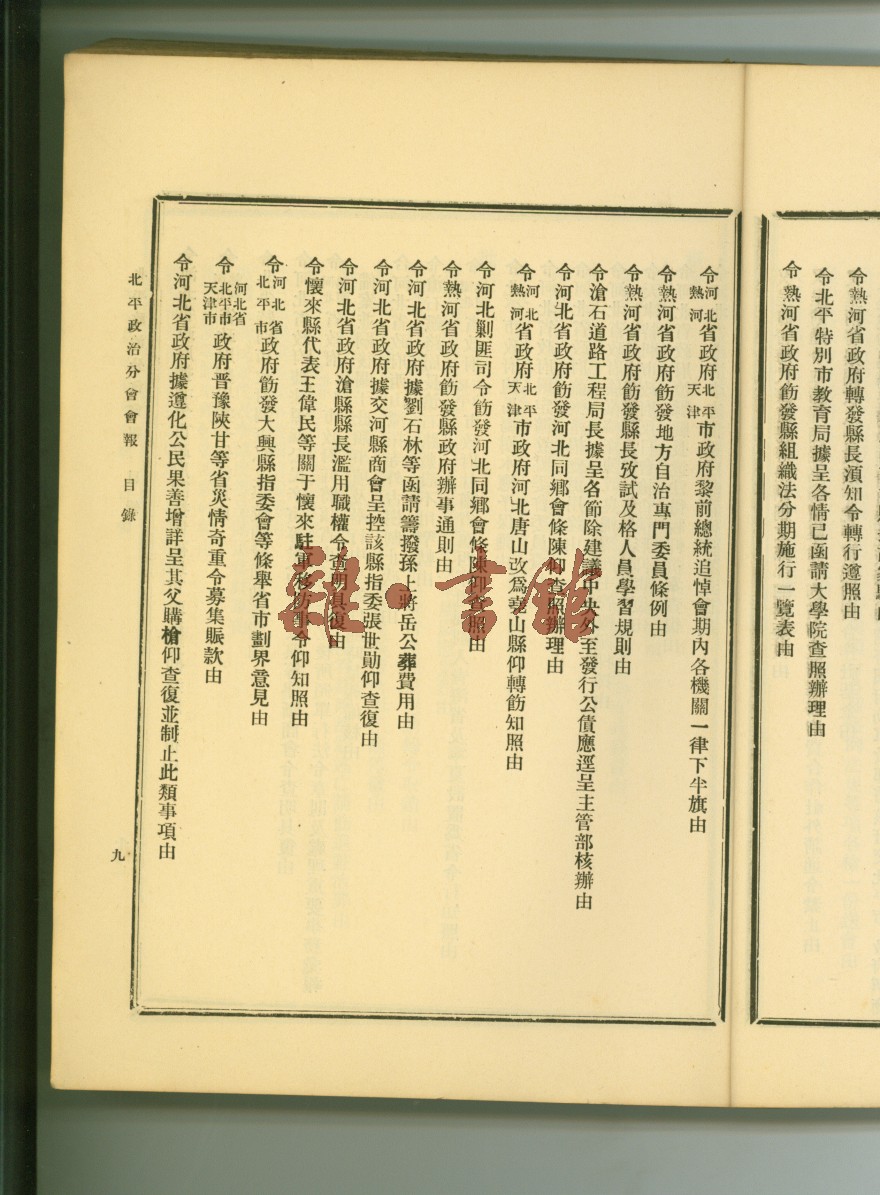 令熱河省政府轉發縣長須知令轉行遵照由
令北平特別市教育局據呈各情已函請大學院查照辦理由
令熱河省政府飭發縣組織法分期施行一覽表由
令河北熱河省政府北平天津市政府黎前總統追悼會期內各機關一律下半旗由
令熱河省政府飭發地方自治專門委員條例由
令熱河省政府飭發縣長攷試及格人員學習規則由
令滄石道路工程局長據呈各節除建議中央外至發行公債應逕呈主管部核辦由
令河北省政府飭發河北同鄉會條陳仰查照辦理由
令河北熱河省政府北平天津市政府河北唐山改爲堯山縣仰轉飭知照由
令河北剿匪司令飭發河北同鄉會條陳仰查照由
令熱河省政府飭發縣政府辦事通則由
令河北省政府據劉石林等函請籌撥孫上將岳公葬費用由
令河北省政府據交河縣商會呈控該縣指委張世勛仰查復由
令河北省政府滄縣縣長濫用職權令查明具復由
令懷來縣代表王偉民等關于懷來駐軍移防事令仰知照由
令河北省北平市政府飭發大興縣指委會等條舉省市劃界意見由
令河北省北平市天津市政府晋豫陝甘等省災情奇重令募集賑款由
令河北省政府據遵化公民果善增詳呈其父購槍仰查復並制止此類事項由
北平政治分會會報 目錄
九
雜·書館